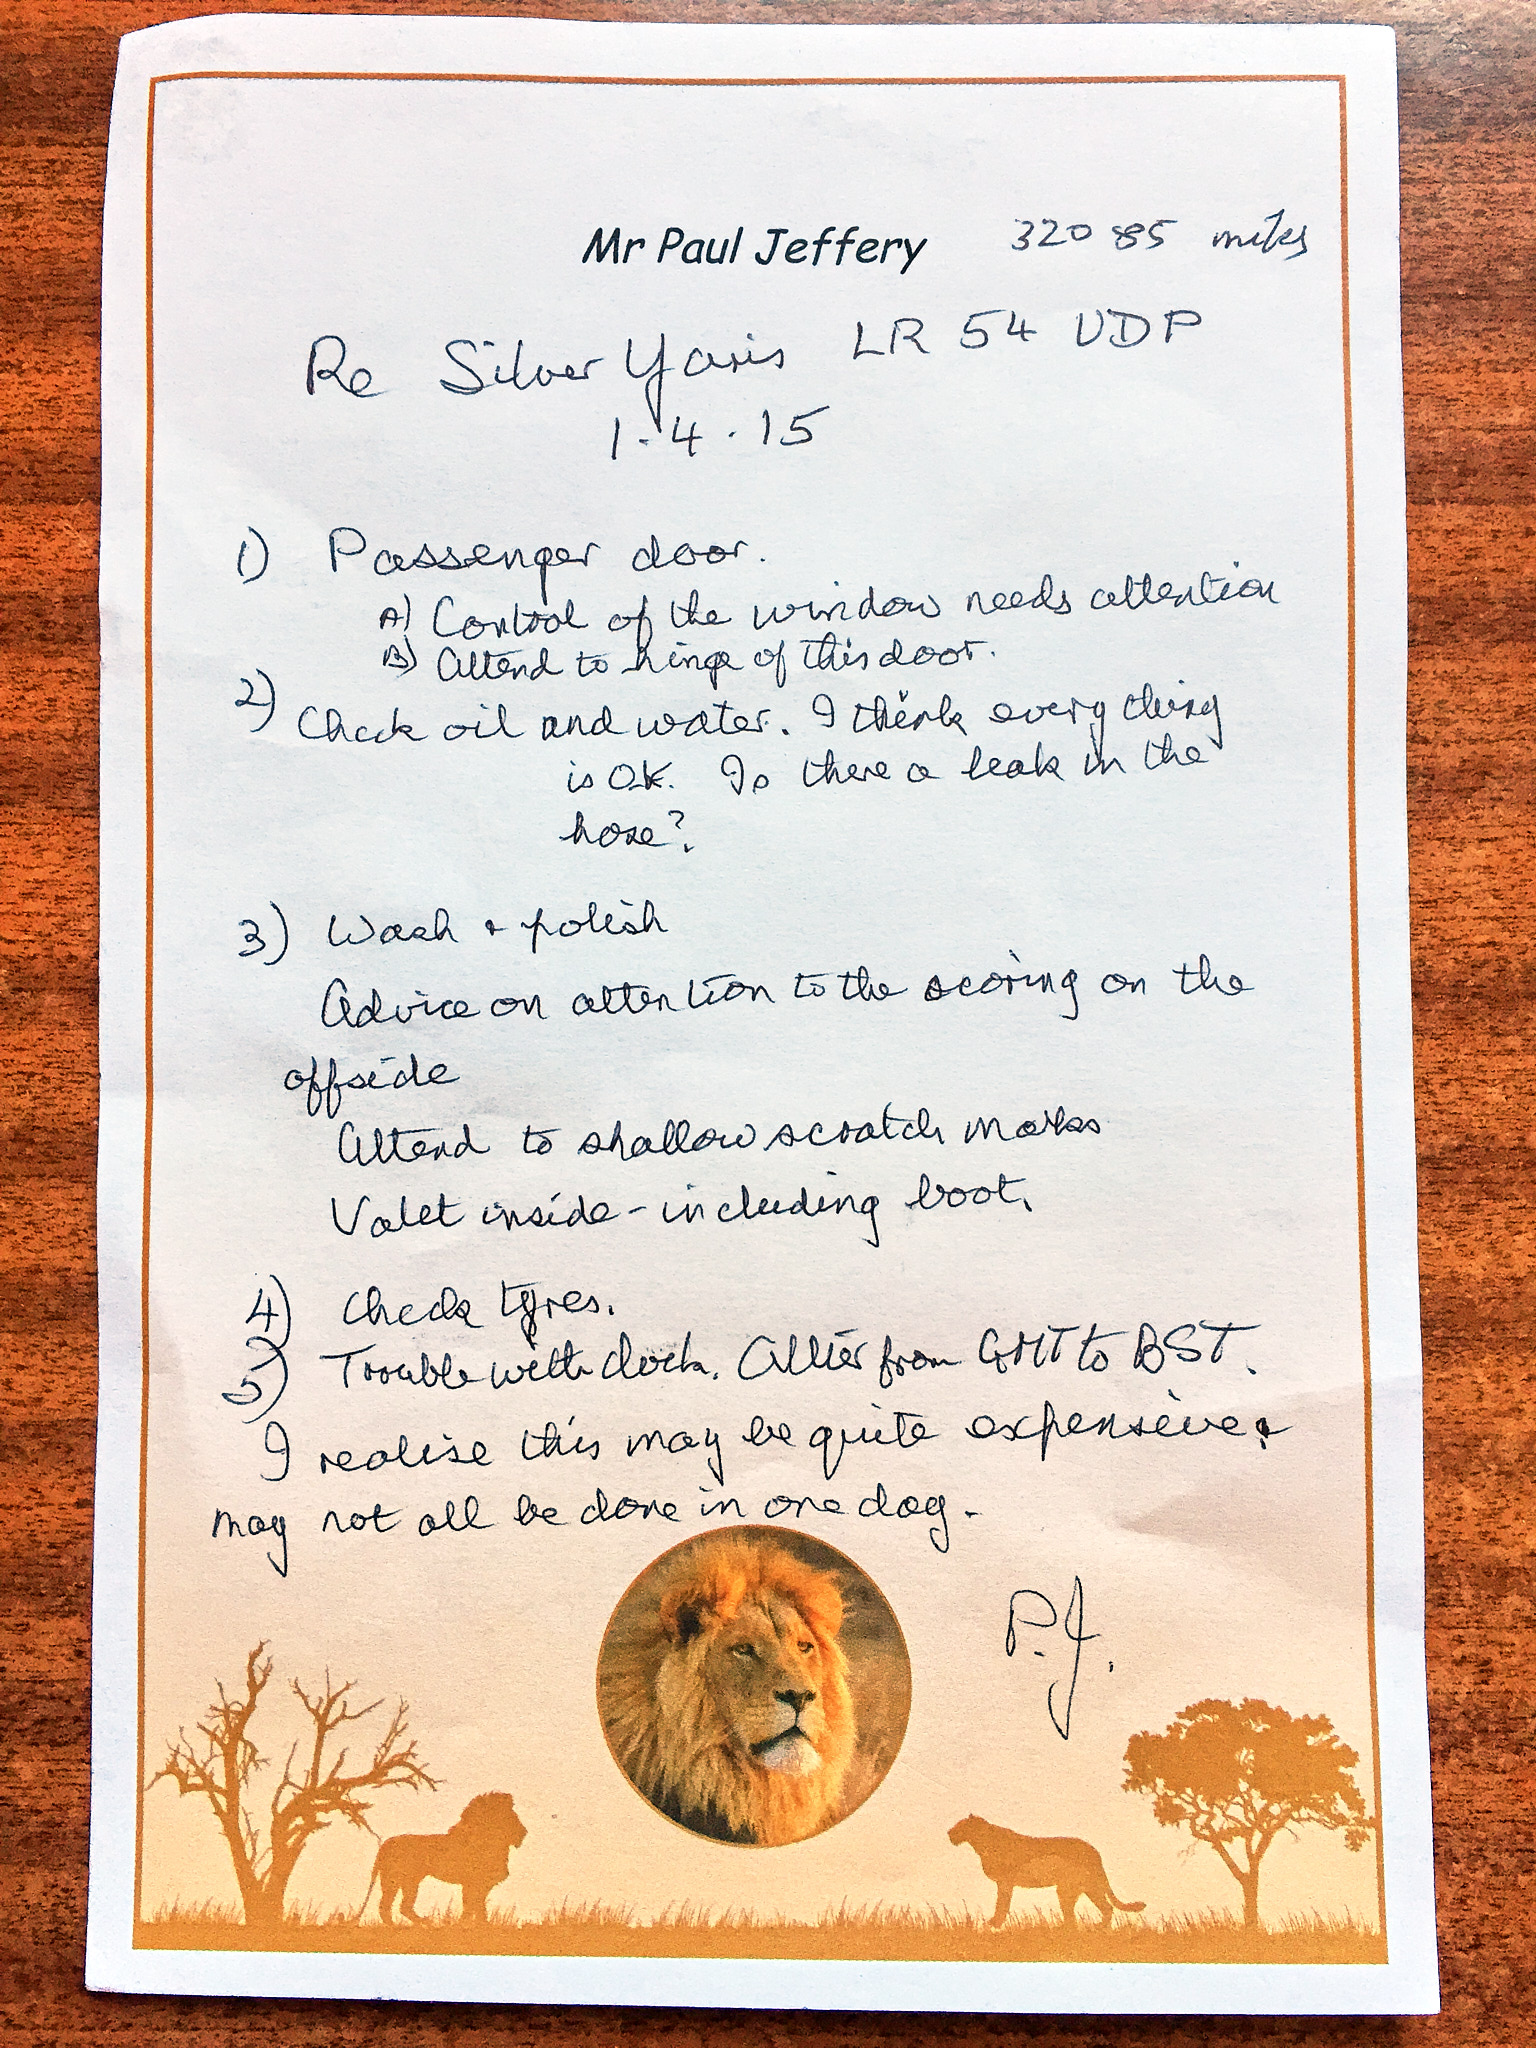 Mr Paul Jeffery 32085 miles
Re Silver Yaris LR 54 UDP
1.4.15
1) Passenger door.
A) Control of the window needs attention
B) Attend to hinge of this door.
2) Check oil and water. I think everything
is OK. Is there a leak in the
hose?
3) Wash + polish
Advice on attention to the scoring on the
offside
Attend to shallow scratch marks
Valet inside - including boot.
4) Check tyres.
5) Trouble with clock. Alter from GMT to BST.
I realise this may be quite expensive &
may not all be done in one day.
P.J.